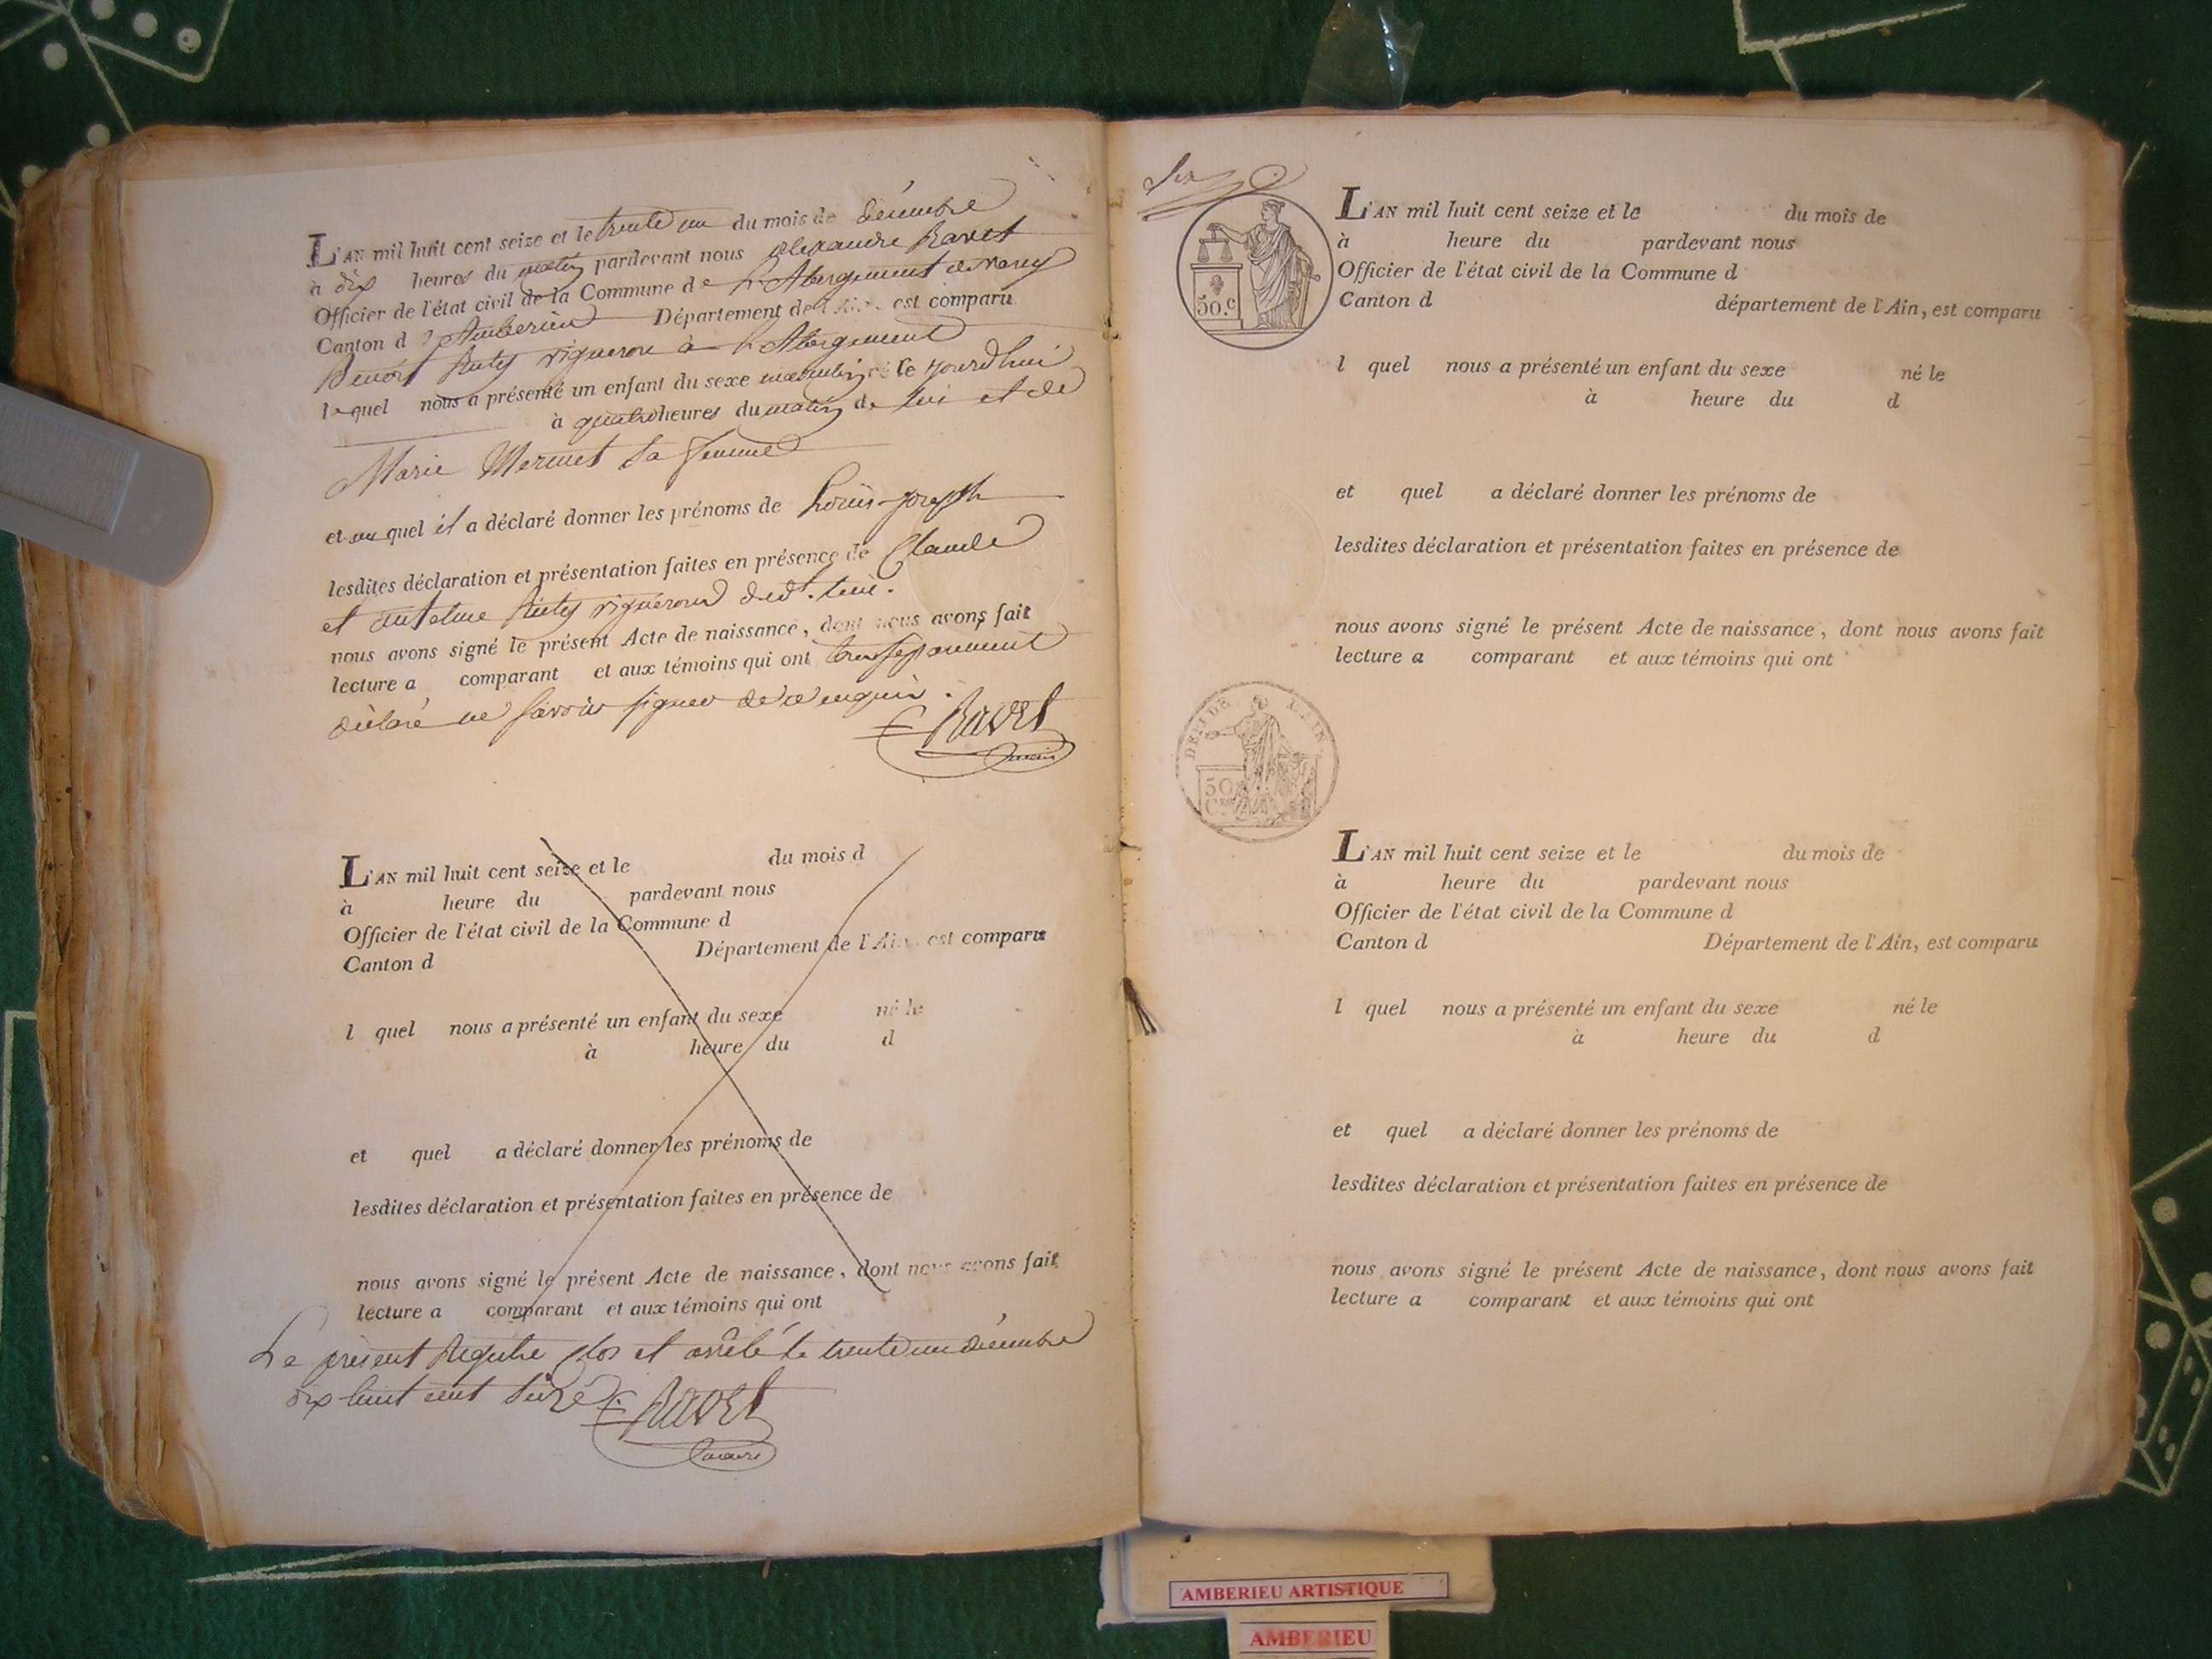 L'AN mil huit cent seize et le trente un du mois de décembre
à dix heures du matin pardevant nous Alexandre Ravet
Officier de l'état civil de la Commune de L'Abergement de Varey
Canton d'Amberieu Département de l'Ain, est comparu
Benoit Ruty vigneron à L'Abergement
lequel nous a présenté un enfant du sexe masculin né le jourdhui
à quatre heures du matin de lui et de
Marie Mermet Sa femme
et au quel il a déclaré donner les prénoms de Louis-joseph
lesdites déclaration et présentation faites en présence de Claude
et antelme Ruty vignerons
nous avons signé le présent Acte de naissance, dont nous avons fait
lecture a comparant et aux témoins qui ont
déclaré ne savoir signer de ce enquis.
Ravet
maire
L'AN mil huit cent seize et le du mois d
à heure du pardevant nous
Officier de l'état civil de la Commune d
Canton d Département de l'Ain, est comparu
l quel nous a présenté un enfant du sexe né le
à heure du d
et quel a déclaré donner les prénoms de
lesdites déclaration et présentation faites en présence de
nous avons signé le présent Acte de naissance, dont nous avons fait
lecture a comparant et aux témoins qui ont
Le présent Registre clos et arrêté le trente un décembre
dix huit cent seize
Ravet
maire
50.c
L'AN mil huit cent seize et le du mois de
à heure du pardevant nous
Officier de l'état civil de la Commune d
Canton d département de l'Ain, est comparu
l quel nous a présenté un enfant du sexe né le
à heure du d
et quel a déclaré donner les prénoms de
lesdites déclaration et présentation faites en présence de
nous avons signé le présent Acte de naissance, dont nous avons fait
lecture a comparant et aux témoins qui ont
DEP. DE L'AIN
50
C.
L'AN mil huit cent seize et le du mois de
à heure du pardevant nous
Officier de l'état civil de la Commune d
Canton d Département de l'Ain, est comparu
l quel nous a présenté un enfant du sexe né le
à heure du d
et quel a déclaré donner les prénoms de
lesdites déclaration et présentation faites en présence de
nous avons signé le présent Acte de naissance, dont nous avons fait
lecture a comparant et aux témoins qui ont
AMBERIEU ARTISTIQUE
AMBERIEU